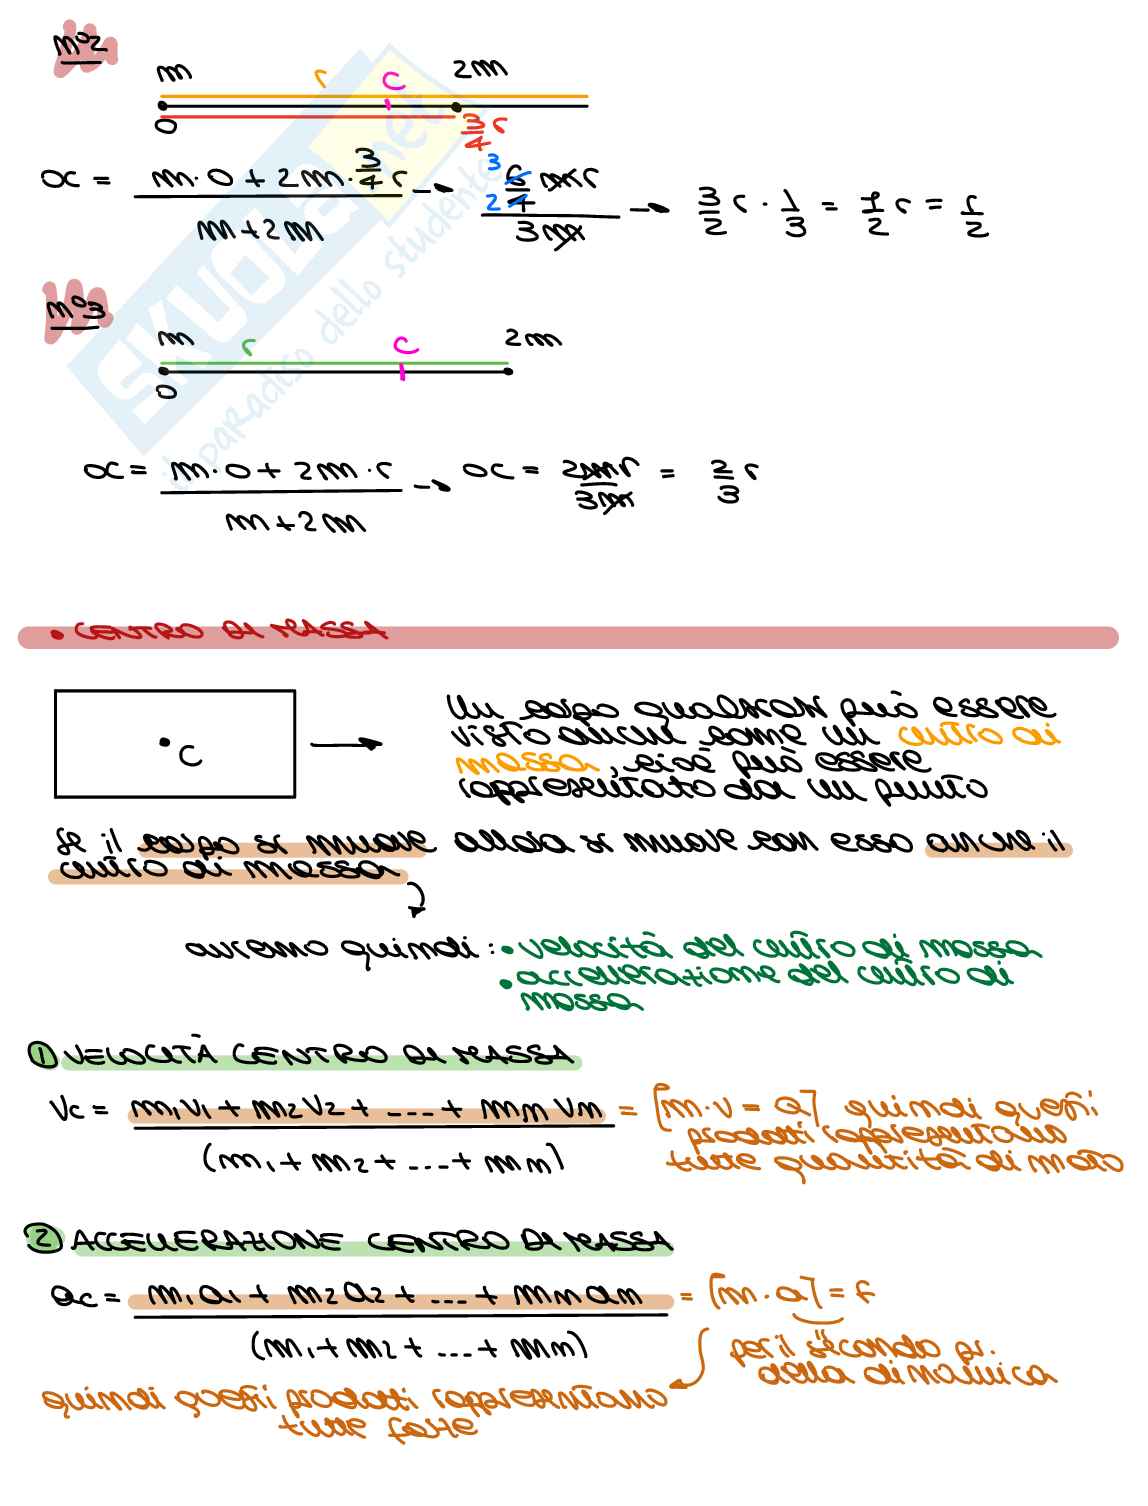 n°2
m r C 2m
0 3/4 r
OC = (m·0 + 2m·3/4 r)/(m+2m) → (6/4 mr)/(3m) 3 2 → 3/2 r · 1/3 = 1/2 r = r/2
SKUOLA.net
il paradiso dello studente
n°3
m r C 2m
0
OC = (m·0 + 2m·r)/(m+2m) → OC = 2mr/3m = 2/3 r
• CENTRO DI MASSA
Un corpo qualsiasi può essere
• C visto anche come un centro di
massa, cioè può essere
rappresentato da un punto
Se il corpo si muove allora si muove con esso anche il
centro di massa
avremo quindi: • velocità del centro di massa
• accellerazione del centro di
massa
① VELOCITÀ CENTRO DI MASSA
Vc = (m₁v₁ + m₂v₂ + ... + mₙvₙ)/(m₁ + m₂ + ... + mₙ) = [m·v = Q] quindi questi
prodotti rappresentano
tutte quantità di moto
② ACCELLERAZIONE CENTRO DI MASSA
ac = (m₁a₁ + m₂a₂ + ... + mₙaₙ)/(m₁ + m₂ + ... + mₙ) = [m·a] = F
per il secondo pr.
della dinamica
quindi questi prodotti rappresentano
tutte forze